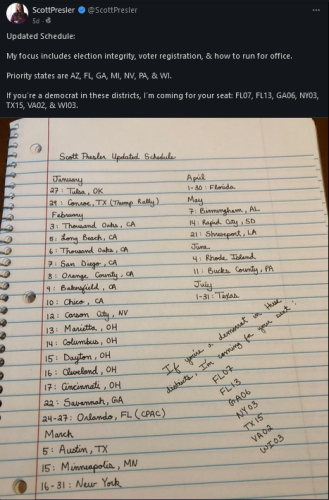 ScottPresler @ScottPresler
5d
Updated Schedule:
My focus includes election integrity, voter registration, & how to run for office.
Priority states are AZ, FL, GA, MI, NV, PA, & WI.
If you're a democrat in these districts, I'm coming for your seat: FL07, FL13, GA06, NY03,
TX15, VA02, & WI03.
Scott Presler Updated Schedule
January
27: Tulsa, OK
29: Conroe, TX (Trump Rally)
February
3: Thousand Oaks, CA
5: Long Beach, CA
6: Thousand Oaks, CA
7: San Diego, CA
8: Orange County, CA
9: Bakersfield, CA
10: Chico, CA
12: Carson City, NV
13: Marietta, OH
14: Columbus, OH
15: Dayton, OH
16: Cleveland, OH
17: Cincinnati, OH
22: Savannah, GA
24-27: Orlando, FL (CPAC)
March
5: Austin, TX
15: Minneapolis, MN
16-31: New York
April
1-30: Florida
May
7: Birmingham, AL
14: Rapid City, SD
21: Shreveport, LA
June
4: Rhode Island
11: Bucks County, PA
July
1-31: Texas
If you're a democrat in these
districts, I'm coming for your seat:
FL07
FL13
GA06
NY03
TX15
VA02
WI03